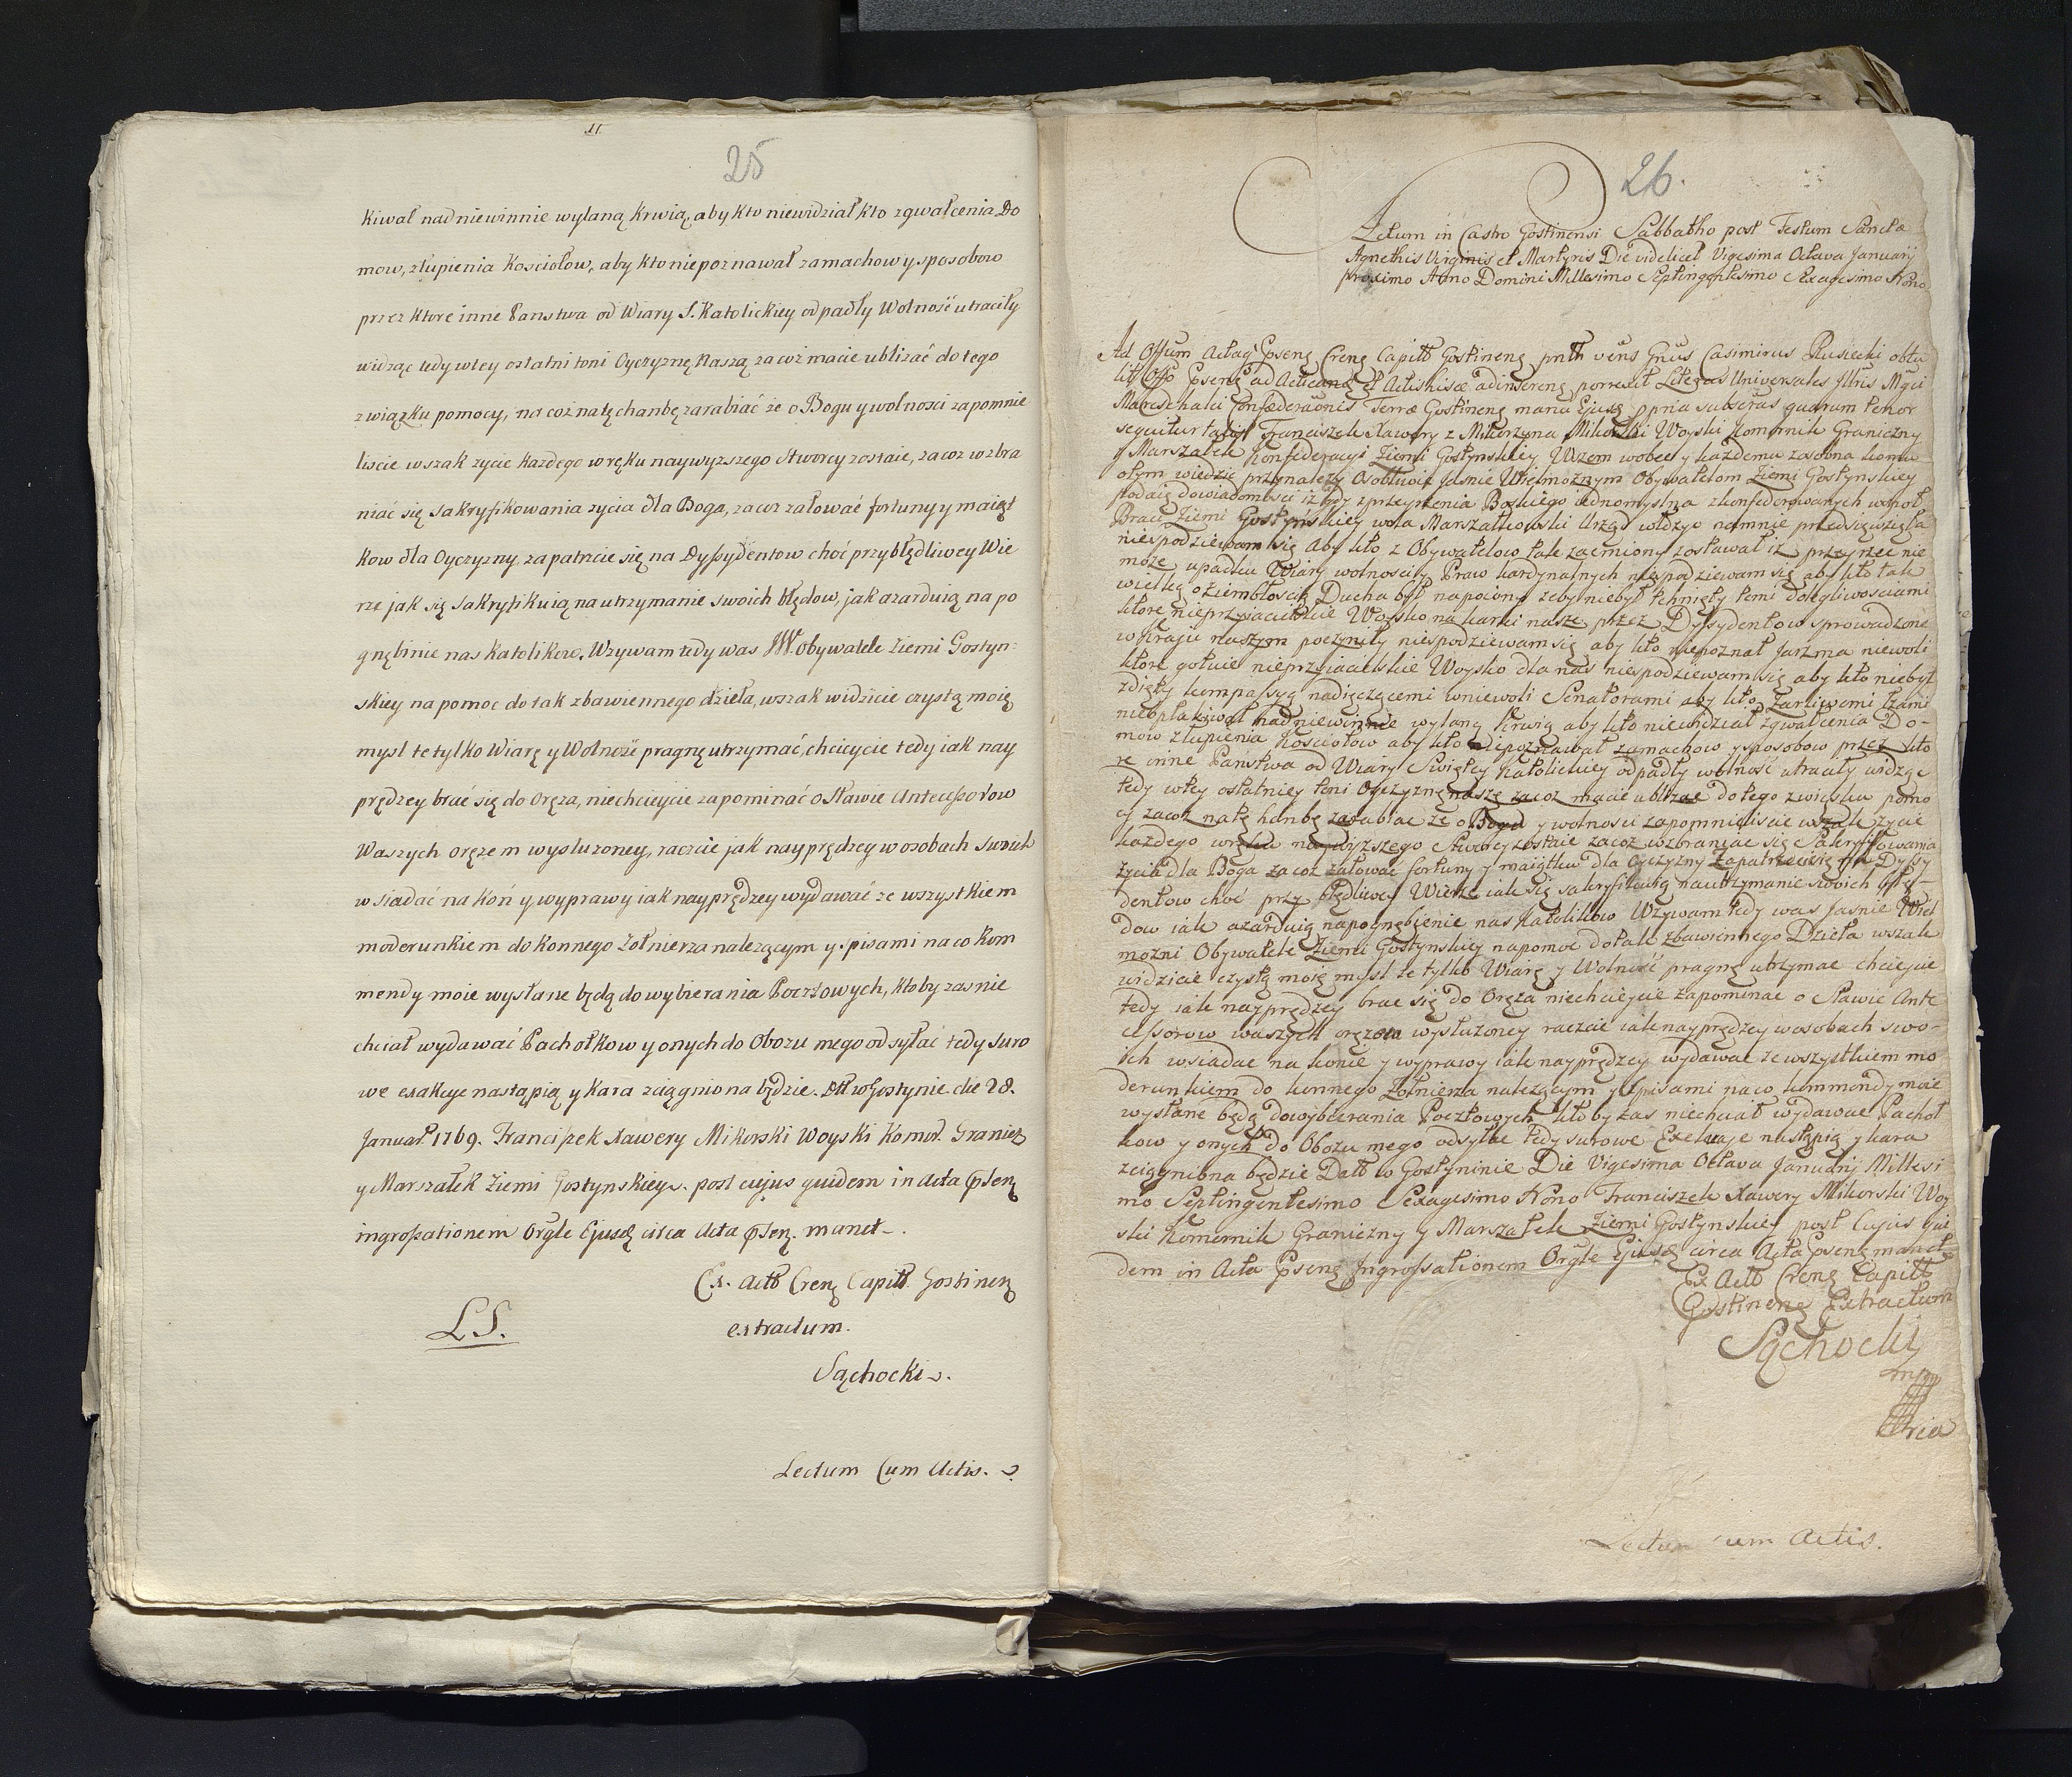 11
25
Kiwał nad niewinnie wylaną Krwią, aby Kto niewidział kto zgwałcenia Do
mow, złupienia Kosciołow, aby kto niepoznawał zamachow y sposobow
przez Ktore inne Panstwa od Wiary S. Katolickiey odpadły Wolność utraciły
widząc tedy w tey ostatni toni Oyczyznę Naszą za coż macie ublizać do tego
związku pomocy, na coż na tę chanbę zarabiać że o Bogu y wolnosci zapomnie
liscie wszak zycie Każdego w ręku naywyzszego Stworcy zostaie, za coz wzbra
niać się sakryfikowania zycia dla Boga, za coz załować fortuny y maiąt
kow dla Oyczyzny, zapatrcie się na Dyssydentow choć przy błędliwey Wie
rze jak się sakryfikuią na utrzymanie swoich błędow, jak azarduią na po
gnębinie nas Katolikow. Wzywam tedy was JWW. Obywatele Ziemi Gostyn:
skiey na pomoc do tak zbawiennego dzieła, wszak widzicie czystą moię
mysl te tylko Wiarę y Wolność pragnę utrzymać, chcieycie tedy iak nay
prędzey brać się do Oręza, niechcieycie zapominać o Sławie Antecessorow
Waszych oręzem wysluzoney, raczcie jak nayprędzey w osobach swoich
wsiadać na Koń y wyprawy iak nayprędzey wydawać ze wszystkiem
moderunkiem do Konnego Zołnierza nalezącym y spisami na co Kom
mendy moie wysłane będą do wybierania Pocztowych, ktoby zas nie
chciał wydawać Pachołkow y onych do Obozu mego odsyłać tedy suro
we exakcye nastąpią y Kara zciągniona będzie. Dtt w Gostynie die 28.
Januar. 1769. Franciszek Xawery Mikorski Woyski Komor. Granicz
y Marszałek Ziemi Gostynskiey. post cujus quidem in Acta psen
ingrossationem Orgle Ejusd circa Acta psen. manet.
Ex. Actt Cren Capitt Gostinen
L.S.
extractum.
Sąchocki.
Lectum Cum Actis.
26.
Actum in Castro Gostinensi Sabbatho post Festum Sanctæ
Agnethis Virginis et Martyris Die videlicet Vigesima Octava Januarij
proximo Anno Domini Millesimo Septingentesimo Sexagesimo Nono
Ad Offum Actaq Psen Cren Capitt Gostinen pntt vens Gnus Casimirus Rusiecki obtu
lit Offo Psen ad Acticand et Actis hisce adinseren porrexit Literas Universales Illris Mgci
Mareschalci Confæderaonis Terræ Gostinen manu Ejusd ppria subscrtas quarum tenor
sequitur talis Franciszek Xawery z Mikorzyna Mikorski Woyski Komornik Graniczny
y Marszałek Konfederacyi Ziemi Gostynskiey Wszem wobec y kazdemu zosobna komu
otym wiedzić przynalezy Osobliwie Jasnie Wielmożnym Obywatelom Ziemi Gostynskiey
podaię dowiadomosci iż gdy zprzeyrzenia Boskiego jednomyslna zkonfederowanych wspoł
Braci Ziemi Gostynskiey wola Marszałkowski Urząd włożyc namnie przedsięwzięła
niespodziewam się Aby kto z Obywatelow tak zacmiony zostawał iż przeyrzec nie
może upadku Wiary wolnosci y Praw kardynalnych niespodziewam się aby kto tak
wielkę oziembłoscią Ducha był napoiony żeby niebył tchnięty temi dolegliwosciami
ktore nieprzyiacielskie Woysko na karki nasze przez Dyssydentow sprowadzone
w kraju naszym poczyniły niespodziewam się aby kto niepoznał Jarzma niewoli
ktore gotuie nieprzyiacielskie Woysko dla nas niespodziewam się aby kto niebył
zdięty kompassyą nadięczącemi wniewoli Senatorami aby kto Zarliwemi łzami
nieopłakiwał nadniewinnie wylaną Krwią aby kto niewidział zgwałcenia Do-
mow złupienia Kosciołow aby kto niepoznawał zamachow y sposobow przez kto
re inne Panstwa od Wiary Swiętey Katolickiey odpadły wolność utraciły widząc
tedy wtey ostatniey toni Oyczyznę naszę zacoż macie ublizać do tego związku pomo
cy zacoż natę hanbę zarabiac że o Bogu y wolnosci zapomnieliscie wszak życie
każdego wręku naywyższego Stworcy zostaie zacoż wzbraniac się Sakryfikowania
życia dla Boga zacoż załować fortuny y maiątku dla Oyczyzny Zapatrzciesię na Dyssy
dentow choć przy błędliwey Wierze iak się sakryfikuią nautrzymanie swoich błę-
dow iak azarduią napognębienie nas Katolikow Wzywam tedy was Jasnie Wiel
możni Obywatele Ziemi Gostynskiey napomoc dotak zbawiennego Dzieła wszak
widzicie czystą moię mysl te tylko Wiarę y Wolność pragnę utrzymac chcieycie
tedy iak nayprędzey brac się do Oręża niechcieycie zapominac o Sławie Ante
cessorow waszych orężem wysłużoney raczcie iak nayprędzey wosobach swo-
ich wsiadac na konie y wyprawy iak nayprędzey wydawac ze wszystkiem mo
derunkiem do konnego Żołnierza należącym y spisami naco kommendy moie
wysłane będą dowybierania Pocztowych ktoby zas niechciał wydawac Pachoł
kow y onych do Obozu mego odsyłac tedy surowe Exekucye nastąpią y kara
zciągniona będzie Datt w Gostyninie Die Vigesima Octava Januarij Millesi
mo Septingentesimo Sexagesimo Nono Franciszek Xawery Mikorski Woy
ski Komornik Graniczny y Marszałek Ziemi Gostynskiey post Cujus qui
dem in Acta Psen Ingrossationem Orgle Ejusd circa Acta Psen manet
Ex Actt Cren Capitt
Gostinen Extractum
Sąchocki
mpp
Lectum cum Actis.